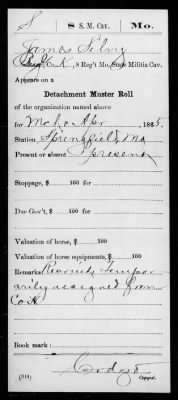 S 8 S. M. Cav. Mo.
James Silvey
Co. K, 8 Reg't Mo. State Militia Cav.
Appears on a
Detachment Muster Roll
of the organization named above
for Mch & Apr, 1865.
Station Springfield, Mo
Present or absent Present
Stoppage, $ 100 for
Due Gov't, $ 100 for
Valuation of horse, $ 100
Valuation of horse equipments, $ 100
Remarks Recruit, Tempor
arily assigned from
Co K
Book mark:
(311) Copyist.